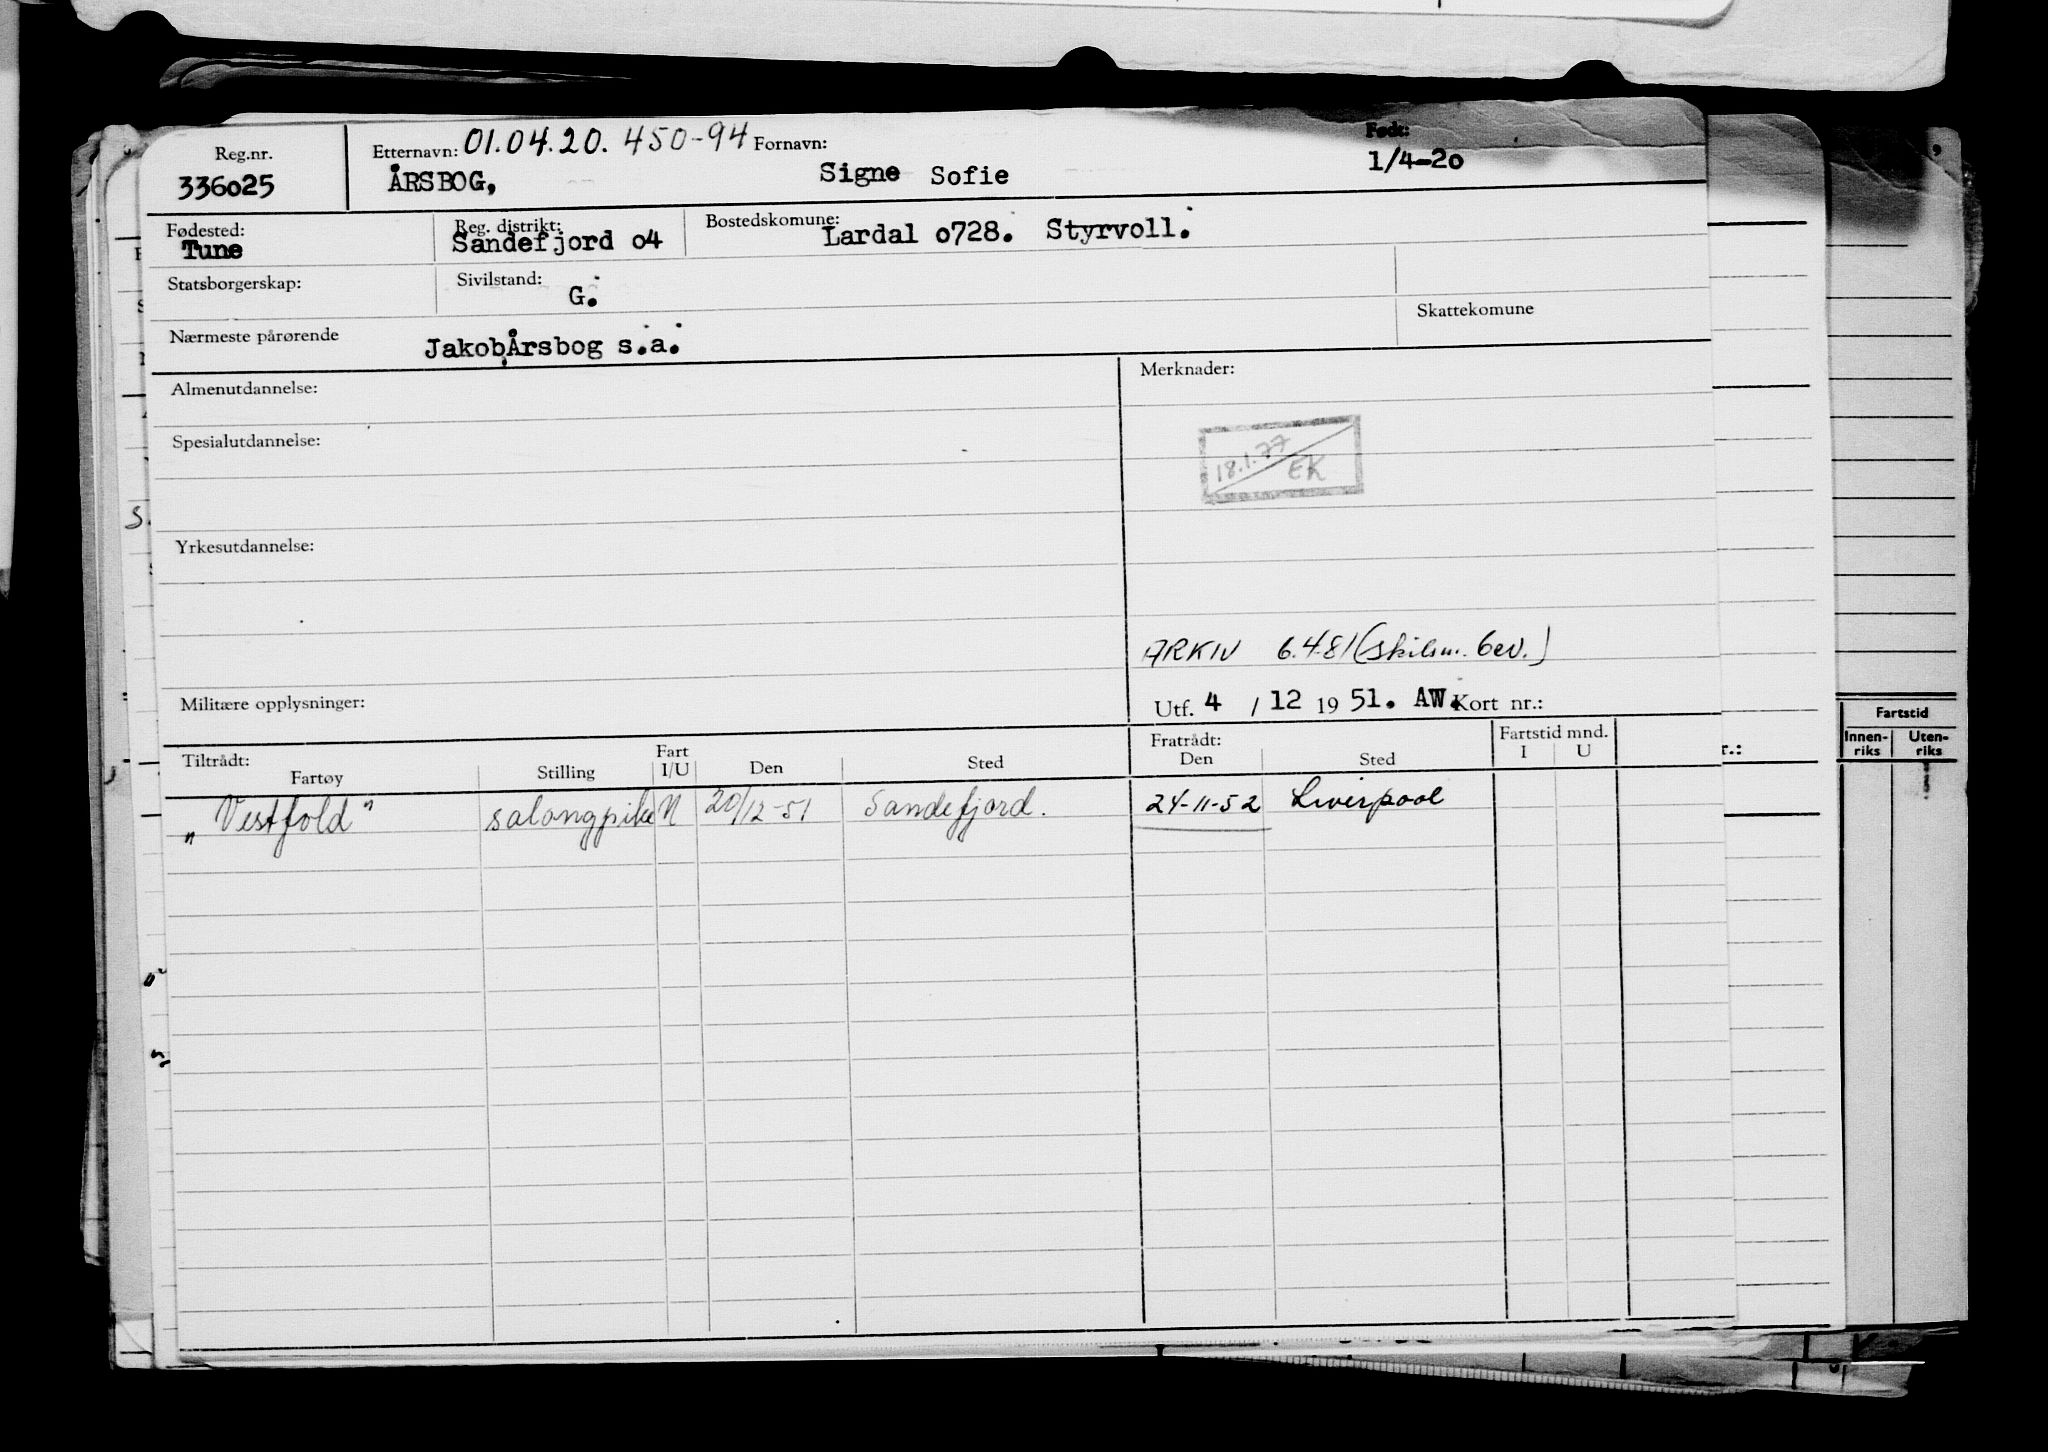 Reg.nr. Etternavn: 01.04.20. 450-94 Fornavn: Født:
336o25 ÅRSBOG, Signe Sofie 1/4-2o
Fødested: Reg. distrikt: Bostedskomune:
Tune Sandefjord o4 Lardal o728. Styrvoll.
Statsborgerskap: Sivilstand:
G.
Skattekomune
Nærmeste pårørende JakobÅrsbog s.a.
Almenutdannelse: Merknader:
Spesialutdannelse:
18.1.77
EK
Yrkesutdannelse:
ARKIV 6.4.81 (skilsm. bev.)
Militære opplysninger: Utf. 4 / 12 19 51. AW. Kort nr.:
Tiltrådt: Fart Fratrådt: Fartstid mnd.
Fartøy Stilling I/U Den Sted Den Sted I U
„Vestfold" salongpike 20/12-51 Sandefjord. 24-11-52 Liverpool
Fartstid
Innen-riks Uten-riks
r.: